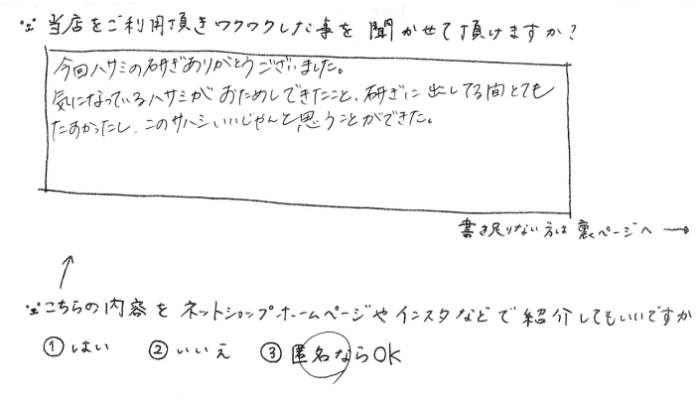 ※当店をご利用頂きワクワクした事を聞かせて頂けますか?
今回ハサミの研ぎありがとうございました。
気になっているハサミがおためしできたこと、研ぎに出してる間とても
たすかったし、このサハシいいじゃんと思うことができた。
書き足りない方は裏ページへ→
↑
※こちらの内容をネットショップホームページやインスタなどで紹介してもいいですか
①はい ②いいえ ③匿名ならOK